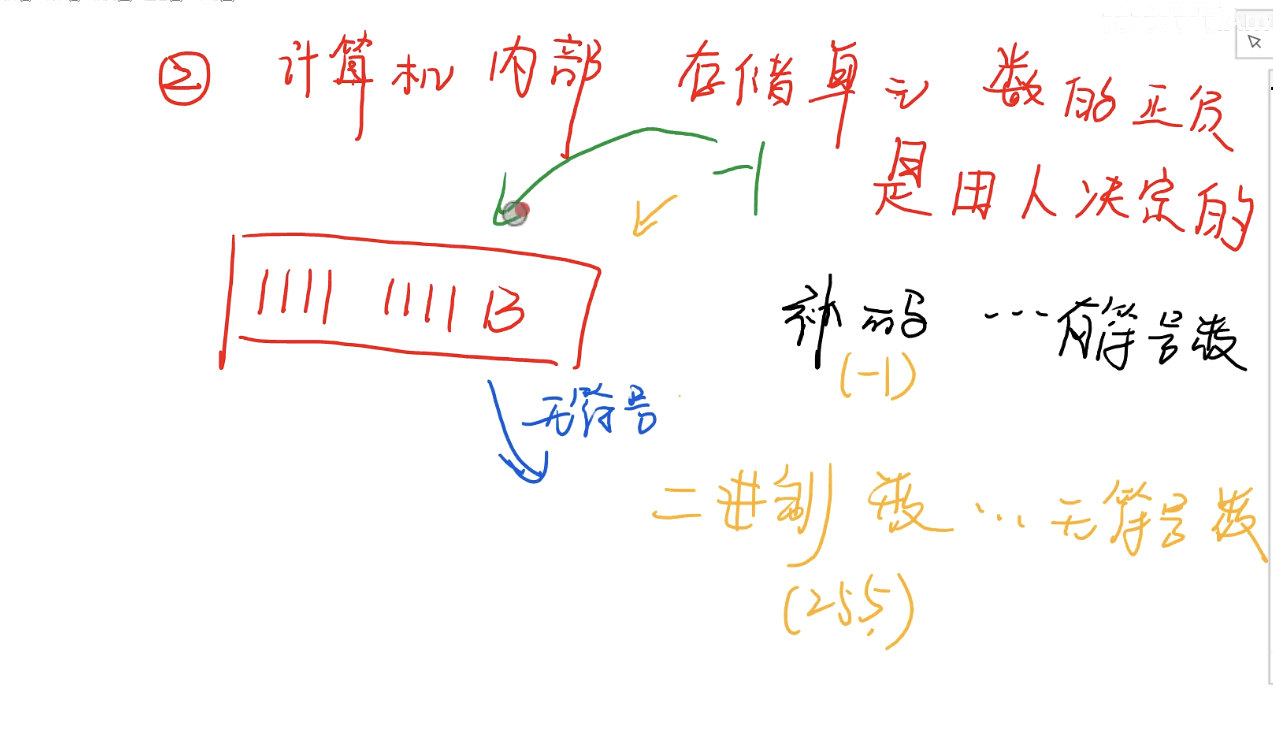 ② 计算机内部 存储单元 数的正负
是由人决定的
-1
1111 1111 B
补码 ... 有符号数
(-1)
无符号
二进制数 ... 无符号数
(255)